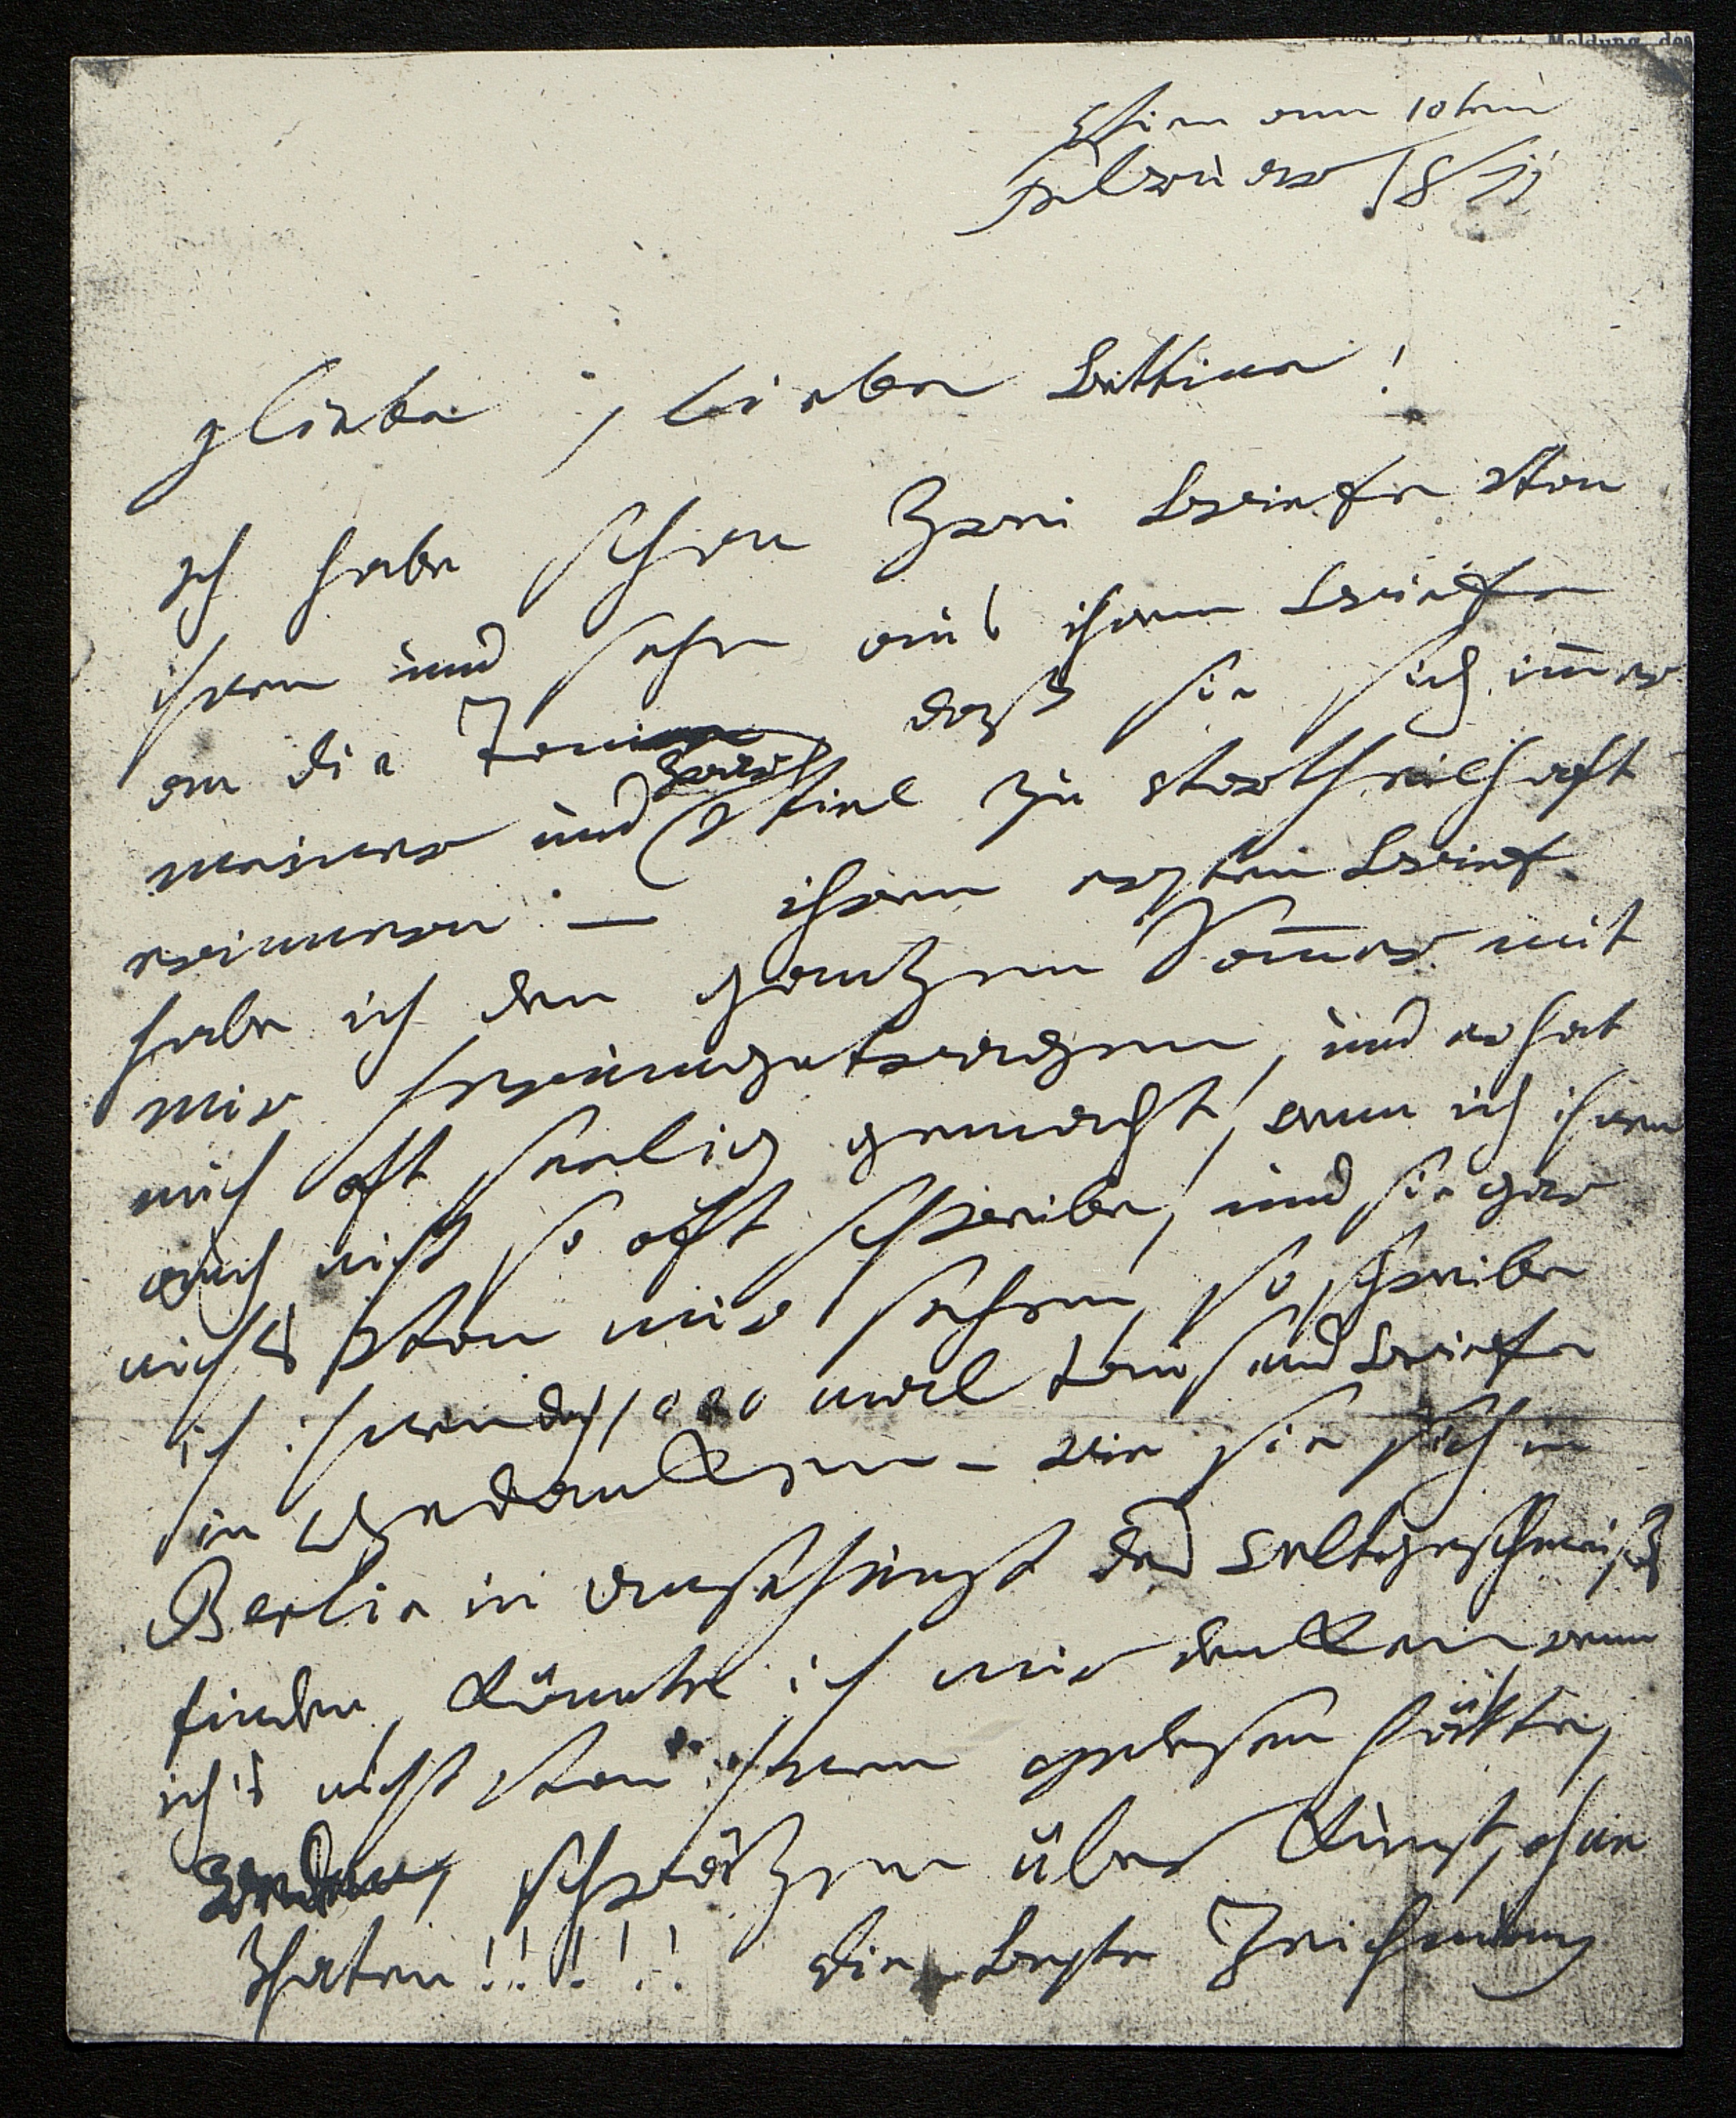 Vien am 10ten
Februar 1811
geliebte, liebe Bettine!
Ich habe schon Zwei Briefe von
ihnen und sehe aus ihrem Briefe
an die Tonie daß sie sich imer
meiner und zwar viel zu vortheilhaft
erinnern. — ihren ersten Brief
habe ich den gantzen Somer mit
mir herumgetragen, und er hat
mich oft seelig gemacht, wenn ich ihnen
auch nicht so oft schreibe, und sie gar
nichts von mir sehen, so schreibe
ich ihnen doch 1000 mal tausend Briefe
in Gedanken – wie sie sich in
Berlin in ansehung des Weltgeschmeiß
finden, könnte ich mir denken wenn
ich's nicht von ihnen gelesen hätte,
schwätzen über Kunst, ohne
Thaten!!!!! die beste Zeichnung